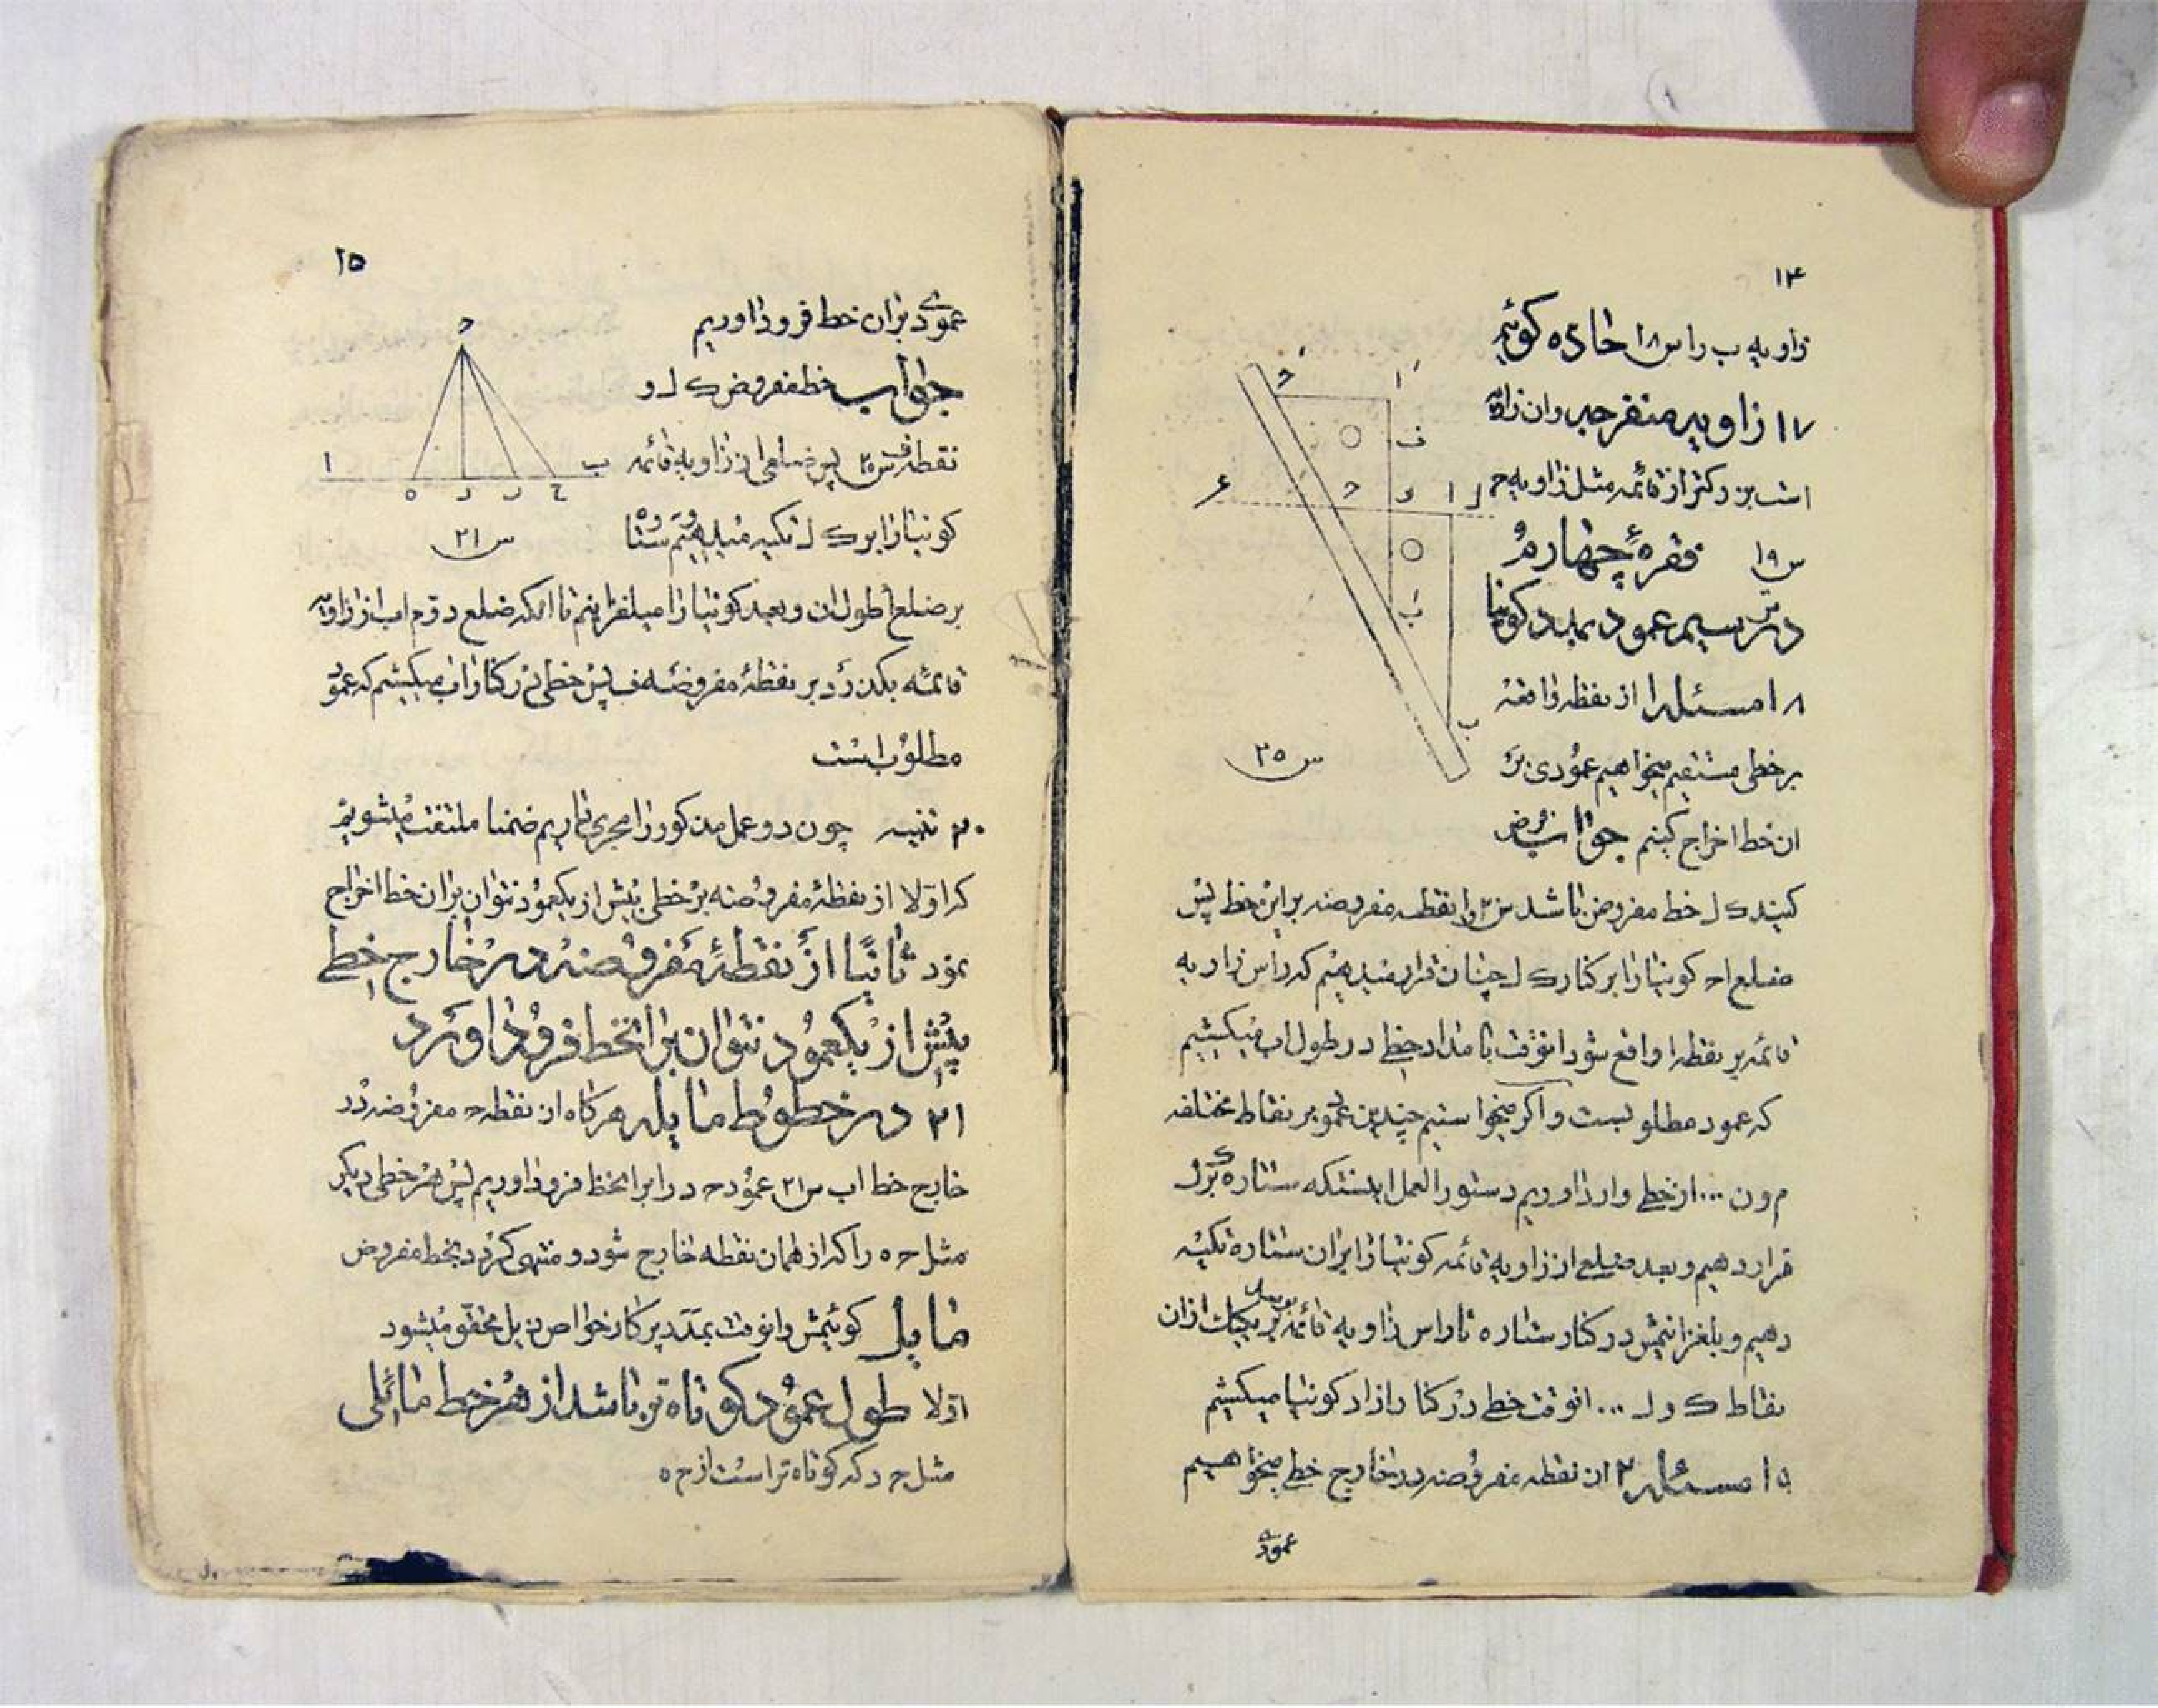 ۱۴
زاویه ب را س ۱۸ حاده کوئیم
۱۷ زاویه منفرجه وان زاویه
است بزرکتر از قائمه مثل زاویه ح
س ۱۹ فقره چهارم
در ترسیم عمود بمدد کونیا
۱۸ مسئله ۱ از نقطه واقعه
بر خطی مستقیم میخواهیم عمودی بر
ان خط اخراج کنیم جواب فرض
کنید ک ل خط مفروض باشد س ۲۰ و ا نقطه مفروضه بر این خط پس
ضلع ا ح کونیا را بر کنار ک ل چنان قرار میدهیم که راس زاویه
قائمه بر نقطه ا واقع شود انوقت با مداد خطی در طول اب میکشیم
که عمود مطلوبست و اکر میخواستیم چندین عمود بر نقاط مختلفه
م و ن ... از خطی وارد اوریم دستور العمل اینستکه ستاره بر ک ل
قرار دهیم و بعد ضلعی از زاویه قائمه کونیا را بر ان ستاره تکیه
دهیم و بلغزانیمش در کنار ستاره تا راس زاویه قائمه بر یکیک ازان
نقاط ک و ل ... انوقت خطی در کنار ازاد کونیا میکشیم
۱۹ مسئله ۲ از نقطه مفروضه در خارج خطی میخواهیم
عمودی
۱۵
عمودی بران خط فرود اوریم
جواب خط مفروض ک ل و
نقطه ف س ۲۰ پس ضلعی از زاویه قائمه
کونیا را بر ک ل تکیه میدهیم و ستاره
بر ضلع اطول ان و بعد کونیا را میلغزانیم تا انکه ضلع دوم اب از زاویه
قائمه بکذرد بر نقطه مفروضه ف پس خطی در کنار اب میکشیم که عمود
مطلوب است
۲۰ تنبیه چون دو عمل مذکور را مجری داریم ضمنا ملتفت میشویم
که اولا از نقطه مفروضه بر خطی بیش از یکعمود نتوان بران خط اخراج
نمود ثانیا از نقطه مفروضه در خارج خطی
بیش از یکعمود نتوان بر انخط فرود اورد
۲۱ در خطوط مایله هرکاه از نقطه ح مفروضه در
خارج خط اب س ۲۱ عمود ح د را بر انخط فرود اوریم پس هر خطی دیکر
مثل ح ه را که از همان نقطه خارج شود و منتهی کردد بخط مفروض
مایل کوئیمش وانوقت بمدد پرکار خواص ذیل محقق میشود
اولا طول عمود کوتاه تر باشد از هر خط مائلی
مثل ح د که کوتاه تر است از ح ه
س ۲۰
س ۲۱